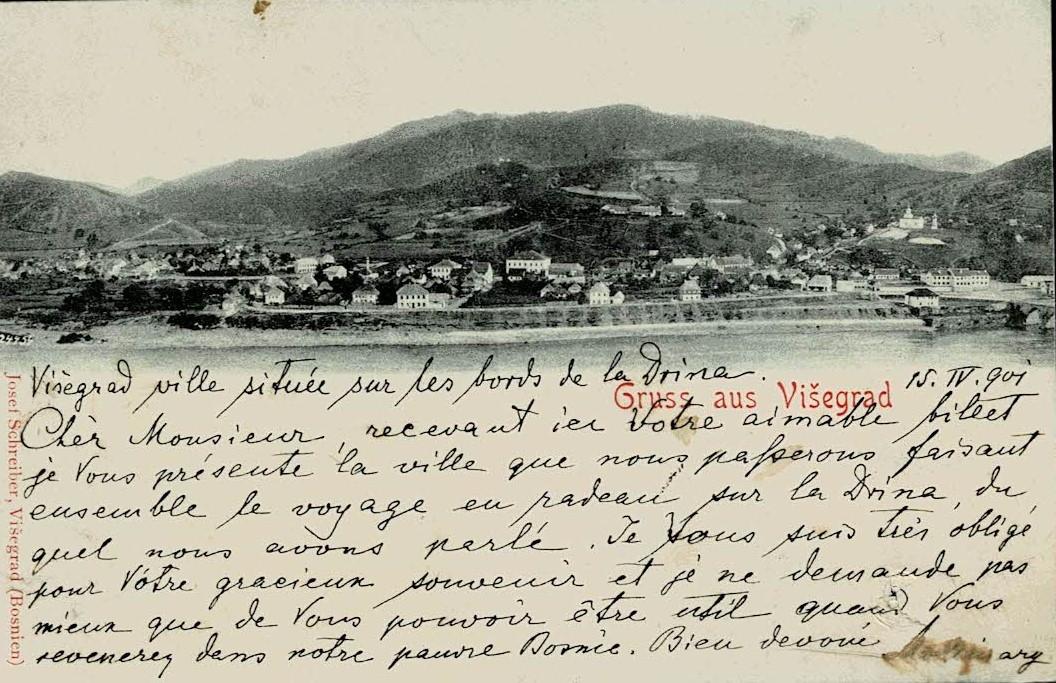 Višegrad ville située sur les bords de la Drina.
Gruss aus Višegrad
15.IV.901
Chèr Monsieur, recevant ici Votre aimable billet
je Vous présente la ville que nous passerons faisant
ensemble le voyage en radeau sur la Drina, du
quel nous avons parlé. Je Vous suis très obligé
pour Vôtre gracieux souvenir et je ne demande pas
mieux que de Vous pouvoir être util quand Vous
revenerez dans notre pauvre Bosnie. Bien devoué
Josef Schreiber, Višegrad (Bosnien)